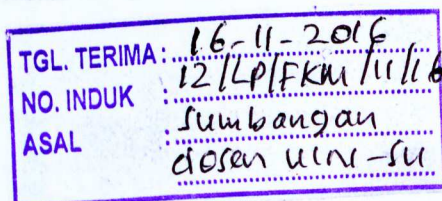 TGL. TERIMA : 16-11-2016
NO. INDUK : 12/LP/FKM/11/16
ASAL : Sumbangan
dosen UIN-SU